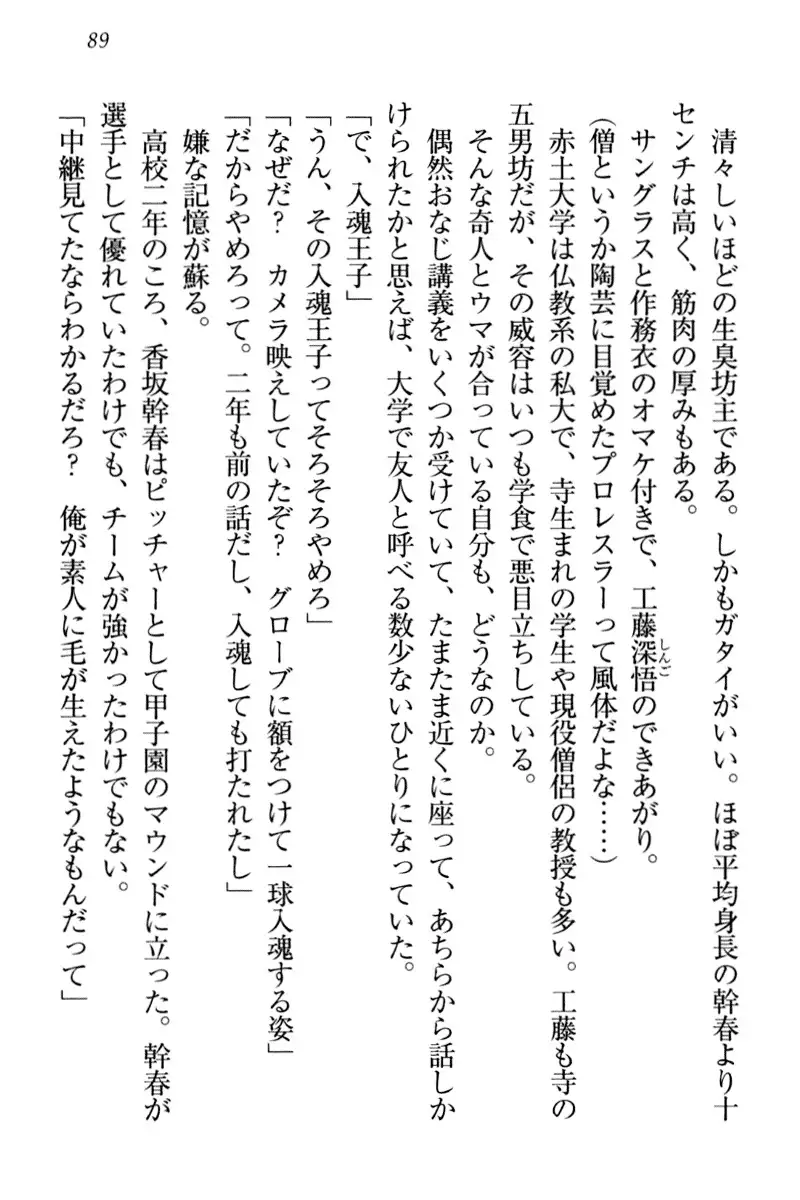 89
清々しいほどの生臭坊主である。しかもガタイがいい。ほぼ平均身長の幹春より十
センチは高く、筋肉の厚みもある。
サングラスと作務衣のオマケ付きで、工藤深悟しんごのできあがり。
(僧というか陶芸に目覚めたプロレスラーって風体だよな……)
赤土大学は仏教系の私大で、寺生まれの学生や現役僧侶の教授も多い。工藤も寺の
五男坊だが、その威容はいつも学食で悪目立ちしている。
そんな奇人とウマが合っている自分も、どうなのか。
偶然おなじ講義をいくつか受けていて、たまたま近くに座って、あちらから話しか
けられたかと思えば、大学で友人と呼べる数少ないひとりになっていた。
「で、入魂王子」
「うん、その入魂王子ってそろそろやめろ」
「なぜだ？　カメラ映えしていたぞ？　グローブに額をつけて一球入魂する姿」
「だからやめろって。二年も前の話だし、入魂しても打たれたし」
嫌な記憶が蘇る。
高校二年のころ、香坂幹春はピッチャーとして甲子園のマウンドに立った。幹春が
選手として優れていたわけでも、チームが強かったわけでもない。
「中継見てたならわかるだろ？　俺が素人に毛が生えたようなもんだって」